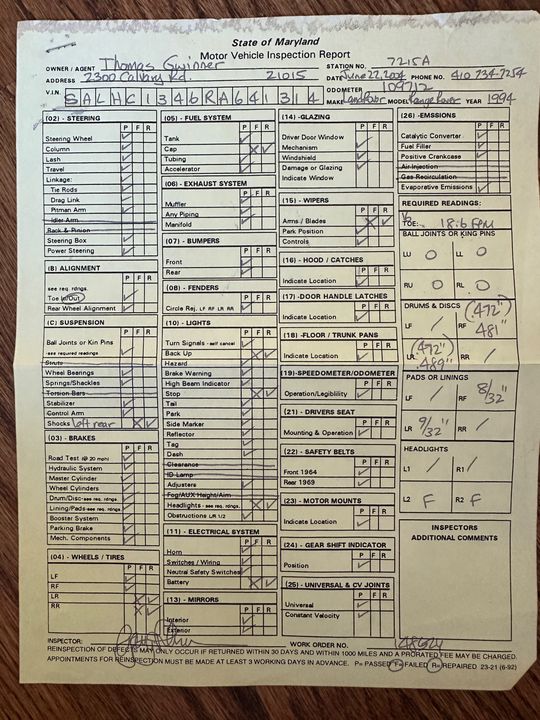 State of Maryland
Motor Vehicle Inspection Report
OWNER / AGENT Thomas Gwinner STATION NO. 7215A
ADDRESS 2300 Calvary Rd. 21015 DATE June 22, 2004 PHONE NO. 410 734-7254
V.I.N. SALHC1346RA641314 ODOMETER 109712
MAKE LandRover MODEL Range Rover YEAR 1994
(02) - STEERING P F R
Steering Wheel
Column
Lash
Travel
Linkage:
Tie Rods
Drag Link
Pitman Arm
Idler Arm
Rack & Pinion
Steering Box
Power Steering
(B) ALIGNMENT
see req. rdngs.
Toe In/Out
Rear Wheel Alignment
(C) SUSPENSION
Ball Joints or Kin Pins
-see required readings
Struts
Wheel Bearings
Springs/Shackles
Torsion Bars
Stabilizer
Control Arm
Shocks left rear
(03) - BRAKES
Road Test @ 20 mph
Hydraulic System
Master Cylinder
Wheel Cylinders
Drum/Disc-see req. rdngs.
Lining/Pads-see req. rdngs.
Booster System
Parking Brake
Mech. Components
(04) - WHEELS / TIRES
LF
RF
LR
RR
(05) - FUEL SYSTEM P F R
Tank
Cap
Tubing
Accelerator
(06) - EXHAUST SYSTEM
Muffler
Any Piping
Manifold
(07) - BUMPERS
Front
Rear
(08) - FENDERS
Circle Rej. LF RF LR RR
(10) - LIGHTS
Turn Signals - self cancel
Back Up
Hazard
Brake Warning
High Beam Indicator
Stop
Tail
Park
Side Marker
Reflector
Tag
Dash
Clearance
ID Lamp
Adjusters
Fog/AUX Height/Aim
Headlights - see req. rdngs.
Obstructions L/R 1/2
(11) - ELECTRICAL SYSTEM
Horn
Switches / Wiring
Neutral Safety Switches
Battery
(13) - MIRRORS
Interior
Exterior
(14) -GLAZING P F R
Driver Door Window
Mechanism
Windshield
Damage or Glazing
Indicate Window
(15) - WIPERS
Arms / Blades
Park Position
Controls
(16) - HOOD / CATCHES
Indicate Location
(17) -DOOR HANDLE LATCHES
Indicate Location
(18) -FLOOR / TRUNK PANS
Indicate Location
(19)-SPEEDOMETER/ODOMETER
Operation/Legiblility
(21) - DRIVERS SEAT
Mounting & Operation
(22) - SAFETY BELTS
Front 1964
Rear 1969
(23) - MOTOR MOUNTS
Indicate Location
(24) - GEAR SHIFT INDICATOR
Position
(25) - UNIVERSAL & CV JOINTS
Universal
Constant Velocity
(26) -EMSSIONS P F R
Catalytic Converter
Fuel Filler
Positive Crankcase
Air Injection
Gas Recirculation
Evaporative Emissions
REQUIRED READINGS:
TOE: 18.6 FPM
BALL JOINTS OR KING PINS
LU O LL O
RU O RL O
DRUMS & DISCS (.472")
LF / RF .481"
(.492")
LR .489" RR /
PADS OR LININGS
LF / RF 8/32"
LR 9/32" RR /
HEADLIGHTS
L1 / R1 /
L2 F R2 F
INSPECTORS
ADDITIONAL COMMENTS
INSPECTOR: WORK ORDER NO.
REINSPECTION OF DEFECTS MAY ONLY OCCUR IF RETURNED WITHIN 30 DAYS AND WITHIN 1000 MILES AND A PRORATED FEE MAY BE CHARGED.
APPOINTMENTS FOR REINSPECTION MUST BE MADE AT LEAST 3 WORKING DAYS IN ADVANCE. P= PASSED F= FAILED R= REPAIRED 23-21 (6-92)